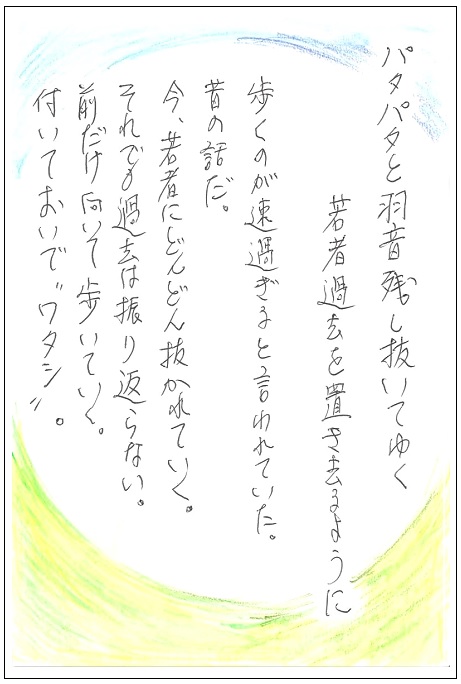 パタパタと羽音残し抜いてゆく
若者過去を置き去るように
歩くのが速過ぎると言われていた。
昔の話だ。
今、若者にどんどん抜かれていく。
それでも過去は振り返らない。
前だけ向いて歩いていく。
付いておいで〝ワタシ〟。